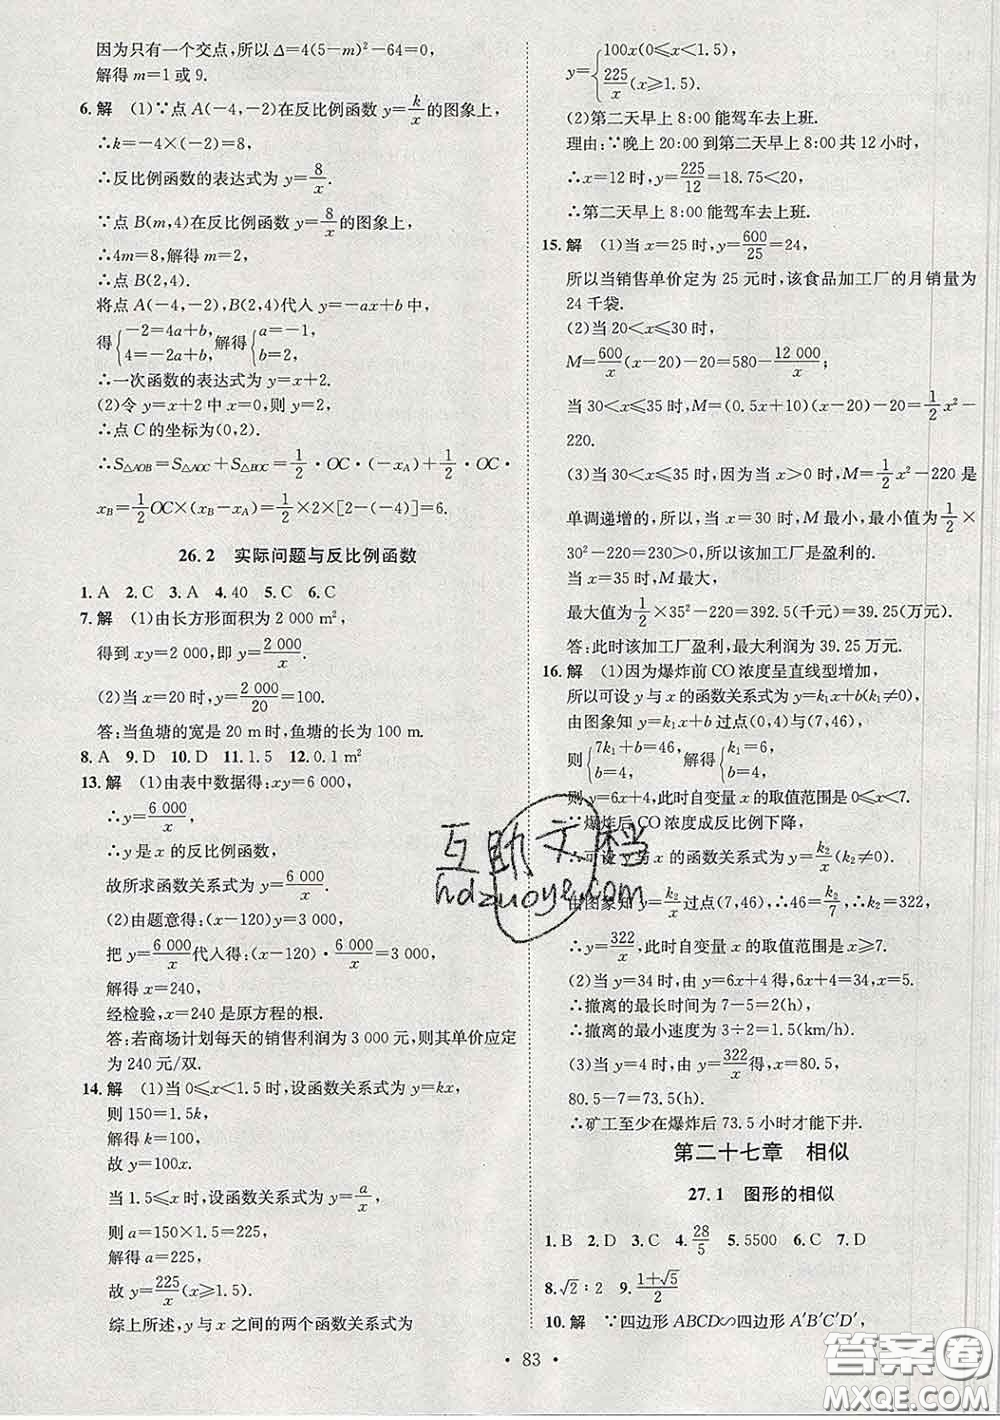 因为只有一个交点,所以 Δ=4(5-m)²-64=0,
解得 m=1 或 9.
6.解 (1)∵点 A(-4,-2)在反比例函数 y=k/x 的图象上,
∴k=-4×(-2)=8,
∴反比例函数的表达式为 y=8/x.
∵点 B(m,4)在反比例函数 y=8/x 的图象上,
∴4m=8,解得 m=2,
∴点 B(2,4).
将点 A(-4,-2),B(2,4)代入 y=-ax+b 中,
得{-2=4a+b, 4=-2a+b, 解得{a=-1, b=2,
∴一次函数的表达式为 y=x+2.
(2)令 y=x+2 中 x=0,则 y=2,
∴点 C 的坐标为(0,2).
∴S△AOB=S△AOC+S△BOC=1/2·OC·(-xA)+1/2·OC·
xB=1/2 OC×(xB-xA)=1/2×2×[2-(-4)]=6.
26.2 实际问题与反比例函数
1.A 2.C 3.A 4.40 5.C 6.C
7.解 (1)由长方形面积为 2 000 m²,
得到 xy=2 000,即 y=2 000/x.
(2)当 x=20 时,y=2 000/20=100.
答:当鱼塘的宽是 20 m 时,鱼塘的长为 100 m.
8.A 9.D 10.D 11.1.5 12.0.1 m²
13.解 (1)由表中数据得:xy=6 000,
∴y=6 000/x,
∴y 是 x 的反比例函数,
故所求函数关系式为 y=6 000/x.
(2)由题意得:(x-120)y=3 000,
把 y=6 000/x 代入得:(x-120)·6 000/x=3 000,
解得 x=240,
经检验,x=240 是原方程的根.
答:若商场计划每天的销售利润为 3 000 元,则其单价应定
为 240 元/双.
14.解 (1)当 0≤x<1.5 时,设函数关系式为 y=kx,
则 150=1.5k,
解得 k=100,
故 y=100x.
当 1.5≤x 时,设函数关系式为 y=a/x,
则 a=150×1.5=225,
解得 a=225,
故 y=225/x(x≥1.5).
综上所述,y 与 x 之间的两个函数关系式为
y={100x(0≤x<1.5), 225/x(x≥1.5).
(2)第二天早上 8:00 能驾车去上班.
理由:∵晚上 20:00 到第二天早上 8:00 共 12 小时,
∴x=12 时,y=225/12=18.75<20,
∴第二天早上 8:00 能驾车去上班.
15.解 (1)当 x=25 时,y=600/25=24,
所以当销售单价定为 25 元时,该食品加工厂的月销量为
24 千袋.
(2)当 20<x≤30 时,
M=600/x(x-20)-20=580-12 000/x;
当 30<x≤35 时,M=(0.5x+10)(x-20)-20=1/2x²-
220.
(3)当 30<x≤35 时,因为当 x>0 时,M=1/2x²-220 是
单调递增的,所以当 x=30 时,M 最小,最小值为1/2×
30²-220>0,所以该加工厂是盈利的.
当 x=35 时,M 最大,
最大值为1/2×35²-220=392.5(千元)=39.25(万元).
答:此时该加工厂盈利,最大利润为 39.25 万元.
16.解 (1)因为爆炸前 CO 浓度呈直线型增加,
所以可设 y 与 x 的函数关系式为 y=k₁x+b(k₁≠0),
由图象知 y=k₁x+b 过点(0,4)与(7,46),
则{7k₁+b=46, b=4, 解得{k₁=6, b=4,
则 y=6x+4,此时自变量 x 的取值范围是 0≤x<7.
∵爆炸后 CO 浓度成反比例下降,
∴可设 y 与 x 的函数关系式为 y=k₂/x(k₂≠0).
由图象知 y=k₂/x 过点(7,46),∴46=k₂/7,∴k₂=322,
∴y=322/x,此时自变量 x 的取值范围是 x≥7.
(2)当 y=34 时,由 y=6x+4 得,6x+4=34,x=5.
∴撤离的最长时间为 7-5=2(h),
∴撤离的最小速度为 3÷2=1.5(km/h).
(3)当 y=4 时,由 y=322/x 得,x=80.5,
80.5-7=73.5(h).
∴矿工至少在爆炸后 73.5 小时才能下井.
第二十七章 相似
27.1 图形的相似
1.B 2.D 3.C 4.28/5 5.5500 6.C 7.D
8.√2∶2 9.(1+√5)/2
10.解 ∵四边形 ABCD∽四边形 A′B′C′D′,
• 83 •
互助文档
hdzuoye.com
答案圈
MXQE.COM